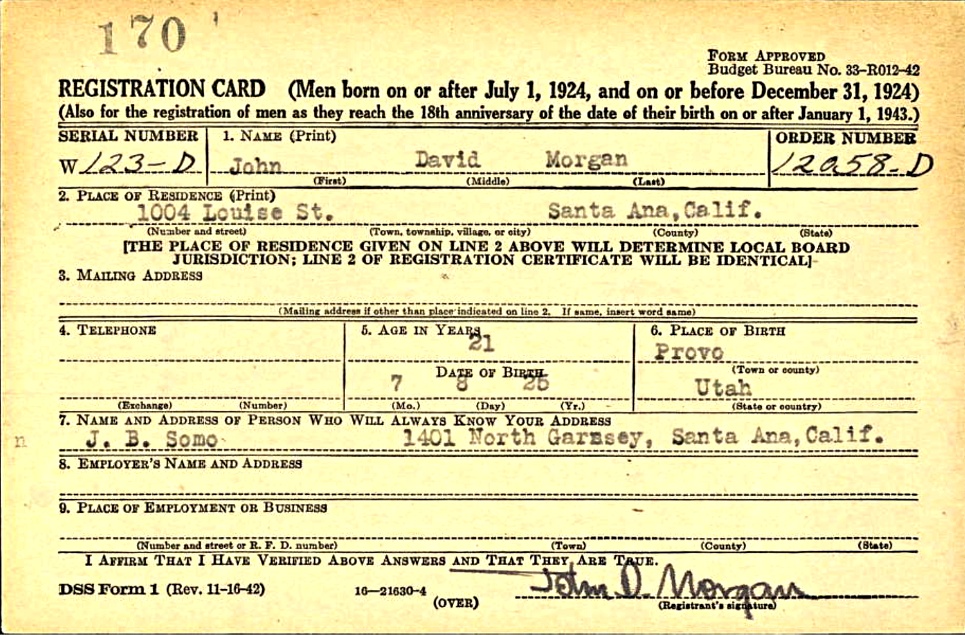 170
FORM APPROVED
Budget Bureau No. 33-R012-42
REGISTRATION CARD (Men born on or after July 1, 1924, and on or before December 31, 1924)
(Also for the registration of men as they reach the 18th anniversary of the date of their birth on or after January 1, 1943.)
SERIAL NUMBER 1. NAME (Print) ORDER NUMBER
W 123-D John David Morgan 12058-D
(First) (Middle) (Last)
2. PLACE OF RESIDENCE (Print)
1004 Louise St. Santa Ana, Calif.
(Number and street) (Town, township, village, or city) (County) (State)
[THE PLACE OF RESIDENCE GIVEN ON LINE 2 ABOVE WILL DETERMINE LOCAL BOARD
JURISDICTION; LINE 2 OF REGISTRATION CERTIFICATE WILL BE IDENTICAL]
3. MAILING ADDRESS
(Mailing address if other than place indicated on line 2. If same, insert word same)
4. TELEPHONE 5. AGE IN YEARS 6. PLACE OF BIRTH
21 Provo
DATE OF BIRTH (Town or county)
7 8 25 Utah
(Exchange) (Number) (Mo.) (Day) (Yr.) (State or country)
7. NAME AND ADDRESS OF PERSON WHO WILL ALWAYS KNOW YOUR ADDRESS
n J. B. Somo 1401 North Garnsey, Santa Ana, Calif.
8. EMPLOYER'S NAME AND ADDRESS
9. PLACE OF EMPLOYMENT OR BUSINESS
(Number and street or R. F. D. number) (Town) (County) (State)
I AFFIRM THAT I HAVE VERIFIED ABOVE ANSWERS AND THAT THEY ARE TRUE.
DSS Form 1 (Rev. 11-16-42) 16—21630-4 John D. Morgan
(OVER) (Registrant's signature)